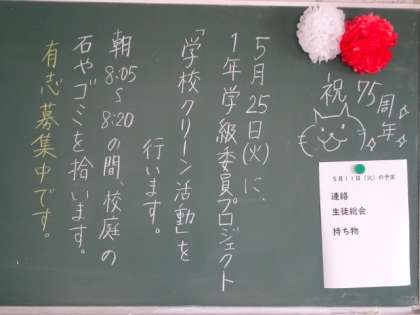 祝75周年
5月25日(火)に、
1年学級委員プロジェクト
「学校クリーン活動」を
行います。
朝8:05〜8:20の間、校庭の
石やゴミを拾います。
有志募集中です。
5月11日(火)の予定
連絡
生徒総会
持ち物